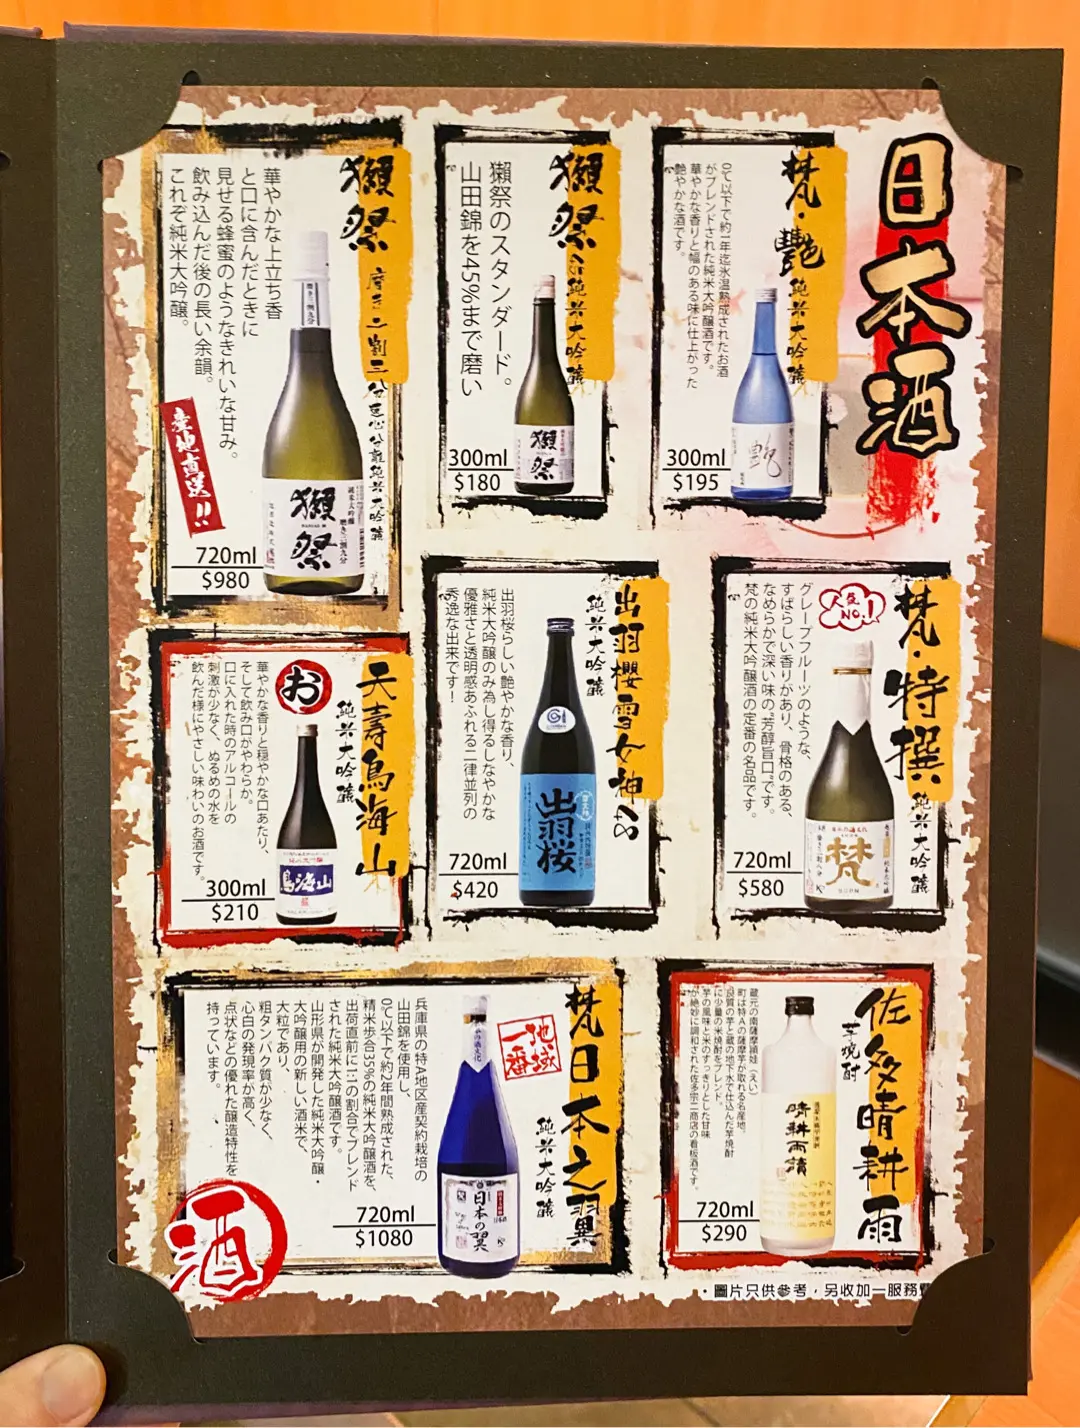 日本酒
梵・艷
純米大吟釀
0℃以下で約一年迄氷温熟成されたお酒
がブレンドされた純米大吟醸酒です。
華やかな香りと幅のある味に仕上がった
艶やかな酒です。
艶
300ml
$195
獺祭
純米大吟釀
獺祭のスタンダード。
山田錦を45%まで磨い
獺祭
300ml
$180
獺祭
磨き二割三分遠心分離純米大吟釀
華やかな上立ち香
と口に含んだときに
見せる蜂蜜のようなきれいな甘み。
飲み込んだ後の長い余韻。
これぞ純米大吟醸。
産地直送!!
獺祭
純米大吟醸
720ml
$980
梵・特撰
純米大吟釀
人気NO.1!
グレープフルーツのような、
すばらしい香りがあり、骨格のある、
なめらかで深い味の“芳醇旨口”です。
梵の純米大吟醸酒の定番の名品です。
梵
720ml
$580
出羽櫻雪女神48
純米大吟釀
出羽桜らしい艶やかな香り、
純米大吟醸のみ為し得るしなやかな
優雅さと透明感あふれる二律並列の
秀逸な出来です！
出羽桜
720ml
$420
天壽鳥海山
純米大吟釀
お
華やかな香りと穏やかな口あたり、
そして飲み口がやわらか。
口に入れた時のアルコールの
刺激が少なく、ぬるめの水を
飲んだ様にやさしい味わいのお酒です。
鳥海山
300ml
$210
佐多晴耕雨
芋焼酎
蔵元の南薩摩頴娃（えい）
町は特Aの薩摩芋が取れる名産地。
良質の芋と蔵の地下水で仕込んだ芋焼酎
に少量の米焼酎をブレンド、
芋の風味と米のすっきりとした甘味
が絶妙に調和された佐多宗二商店の看板酒です。
晴耕雨讀
720ml
$290
梵日本之翼
純米大吟釀
地域一番
兵庫県の特A地区産契約栽培の
山田錦を使用し、
0℃以下で約2年間熟成された、
精米歩合35%の純米大吟醸酒を、
出荷直前に1:1の割合でブレンド
された純米大吟醸酒です。
山形県が開発した純米大吟醸・
大吟醸用の新しい酒米で、
大粒であり、
粗タンパク質が少なく、
心白の発現率が高く、
点状などの優れた醸造特性を
持っています。
日本の翼
720ml
$1080
酒
・圖片只供參考，另收加一服務費